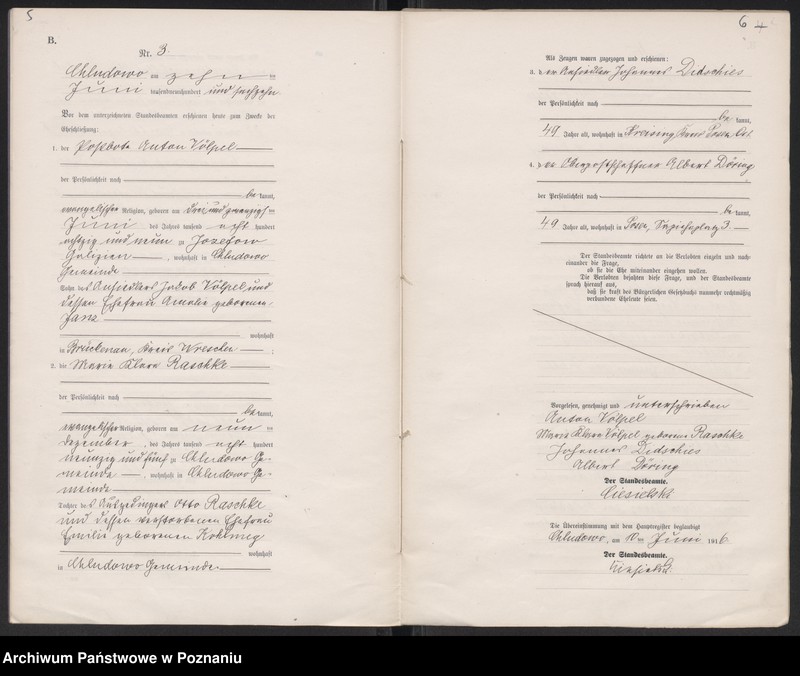 5
B.
Nr. 3.
Chludowo am zehn ten
Juni tausendneunhundert und sechzehn
Vor dem unterzeichneten Standesbeamten erschienen heute zum Zwecke der
Eheschließung:
1. der Postbote Anton Völpel
der Persönlichkeit nach
be kannt,
evangelischer Religion, geboren am drei und zwanzigsten
Juni des Jahres tausend acht hundert
achtzig und neun zu Josefow
Galizien, wohnhaft in Chludowo
Gemeinde
Sohn des Ansiedlers Jakob Völpel und
dessen Ehefrau Amalie geborenen
Janz
wohnhaft
in Brückenau, Kreis Wreschen;
2. die Maria Klara Raschke
der Persönlichkeit nach
be kannt,
evangelischer Religion, geboren am neun ten
Dezember, des Jahres tausend acht hundert
neunzig und fünf zu Chludowo Ge-
meinde, wohnhaft in Chludowo Ge-
meinde
Tochter des Ausgedingers Otto Raschke
und dessen verstorbenen Ehefrau
Emilie geborenen
wohnhaft
in Chludowo Gemeinde
6 4
Als Zeugen waren zugezogen und erschienen:
3. der Ansiedler Johannes Didschies
der Persönlichkeit nach
be kannt,
49 Jahre alt, wohnhaft in Kreis Posen Ost
4. der Oberpostschaffner Albert Döring
der Persönlichkeit nach
be kannt,
49 Jahre alt, wohnhaft in Posen, Sapiehaplatz 3.
Der Standesbeamte richtete an die Verlobten einzeln und nach-
einander die Frage,
ob sie die Ehe miteinander eingehen wollen.
Die Verlobten bejahten diese Frage, und der Standesbeamte
sprach hierauf aus,
daß sie kraft des Bürgerlichen Gesetzbuchs nunmehr rechtmäßig
verbundene Eheleute seien.
Vorgelesen, genehmigt und unterschrieben
Anton Völpel
Maria Klara Völpel geborene Raschke
Johannes Didschies
Albert Döring
Der Standesbeamte.
Ciesielski
Die Übereinstimmung mit dem Hauptregister beglaubigt
Chludowo, am 10 ten Juni 1916.
Der Standesbeamte.
Ciesielski
Archiwum Państwowe w Poznaniu